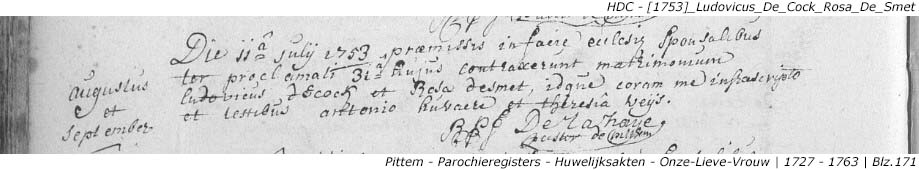 HDC - [1753]_Ludovicus_De_Cock_Rosa_De_Smet
Die 11ª Julij 1753 præmissis in facie ecclesiæ Sponsalibus
ter proclamati 31ª hujus contraxerunt matrimonium
ludovicus decock et Rosa desmet, idque coram me infrascripto
et testibus antonio et theresia weijs.
augustus
et
september
De la haye
pastor de
Pittem - Parochieregisters - Huwelijksakten - Onze-Lieve-Vrouw | 1727 - 1763 | Blz.171